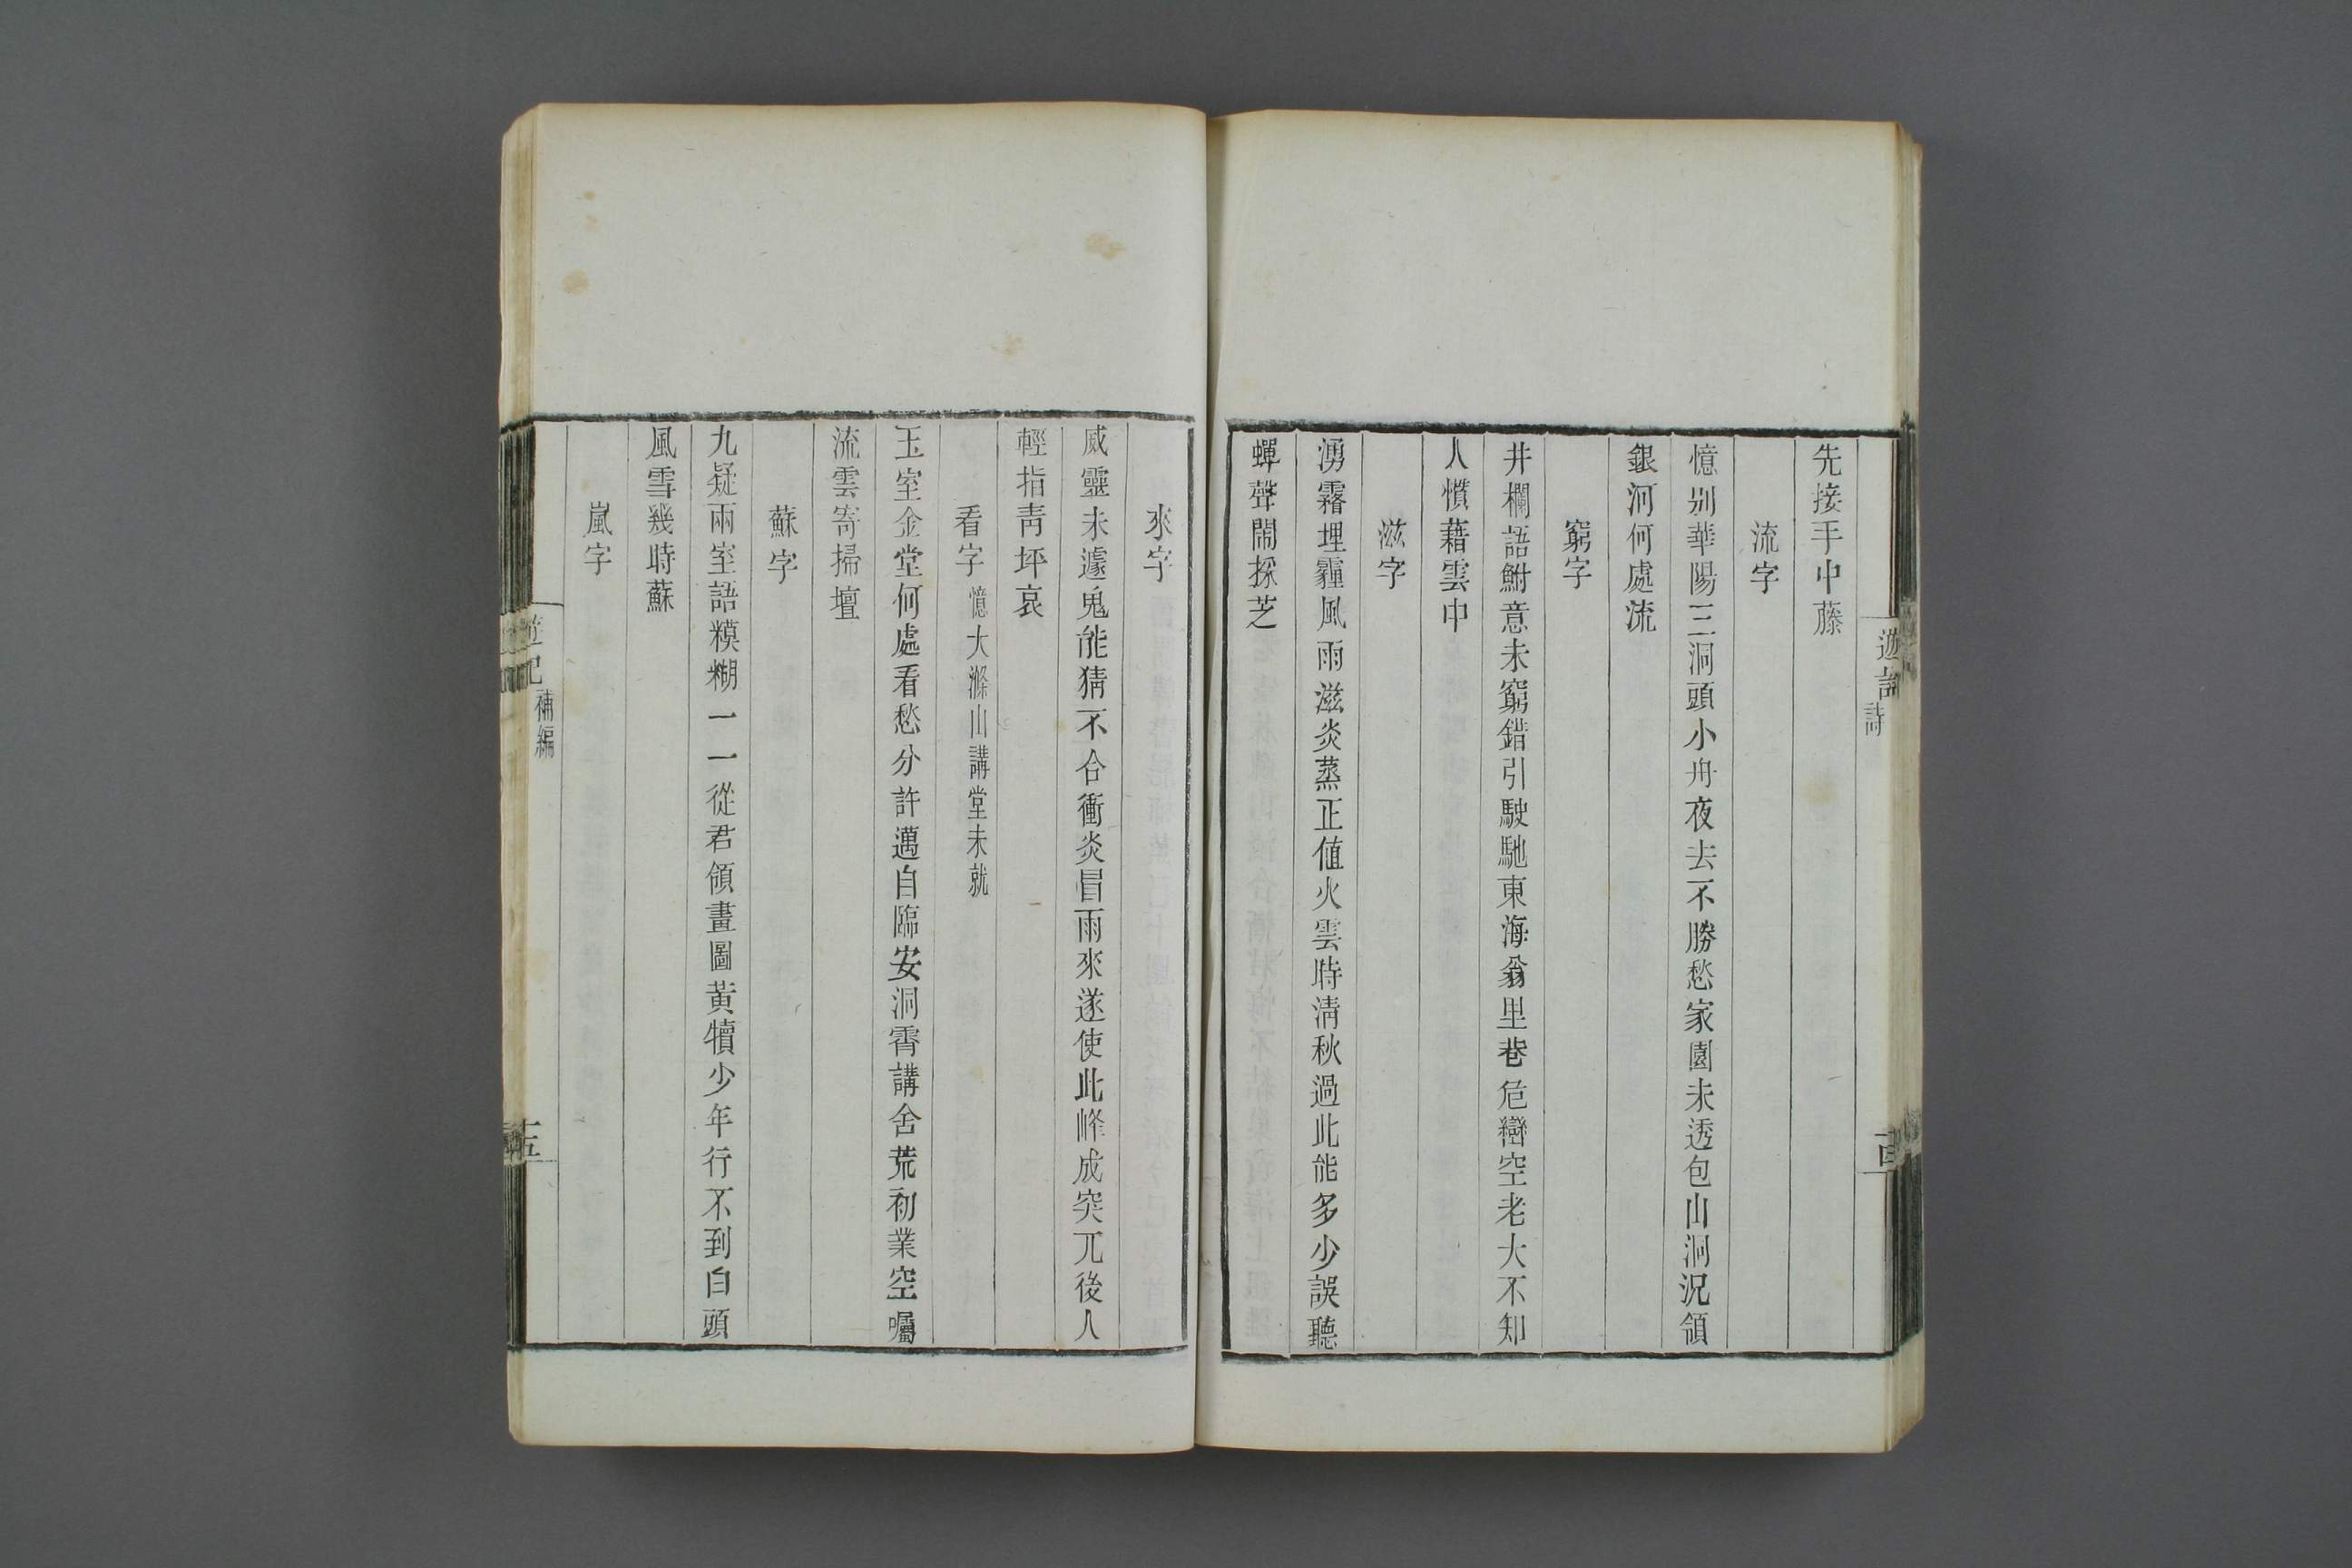 先接手中藤
流字
憶別華陽三洞頭小舟夜去不勝愁家園未透包山洞況領
銀河何處流
窮字
井欄語鮒意未窮錯引駛馳東海翁里巷危巒空老大不知
人憤藉雲中
滋字
湧霧埋霾風雨滋炎蒸正值火雲時淸秋過此能多少誤聽
蟬聲鬧採芝
來字
威靈未遽鬼能猜不合衝炎冒雨來遂使此峰成突兀後人
輕指靑坪哀
看字 憶大滌山講堂未就
玉室金堂何處看愁分許邁自臨安洞霄講舍荒初業空囑
流雲寄掃壇
蘇字
九疑兩室語糢糊一一從君領畫圖黃犢少年行不到白頭
風雪幾時蘇
嵐字
補編